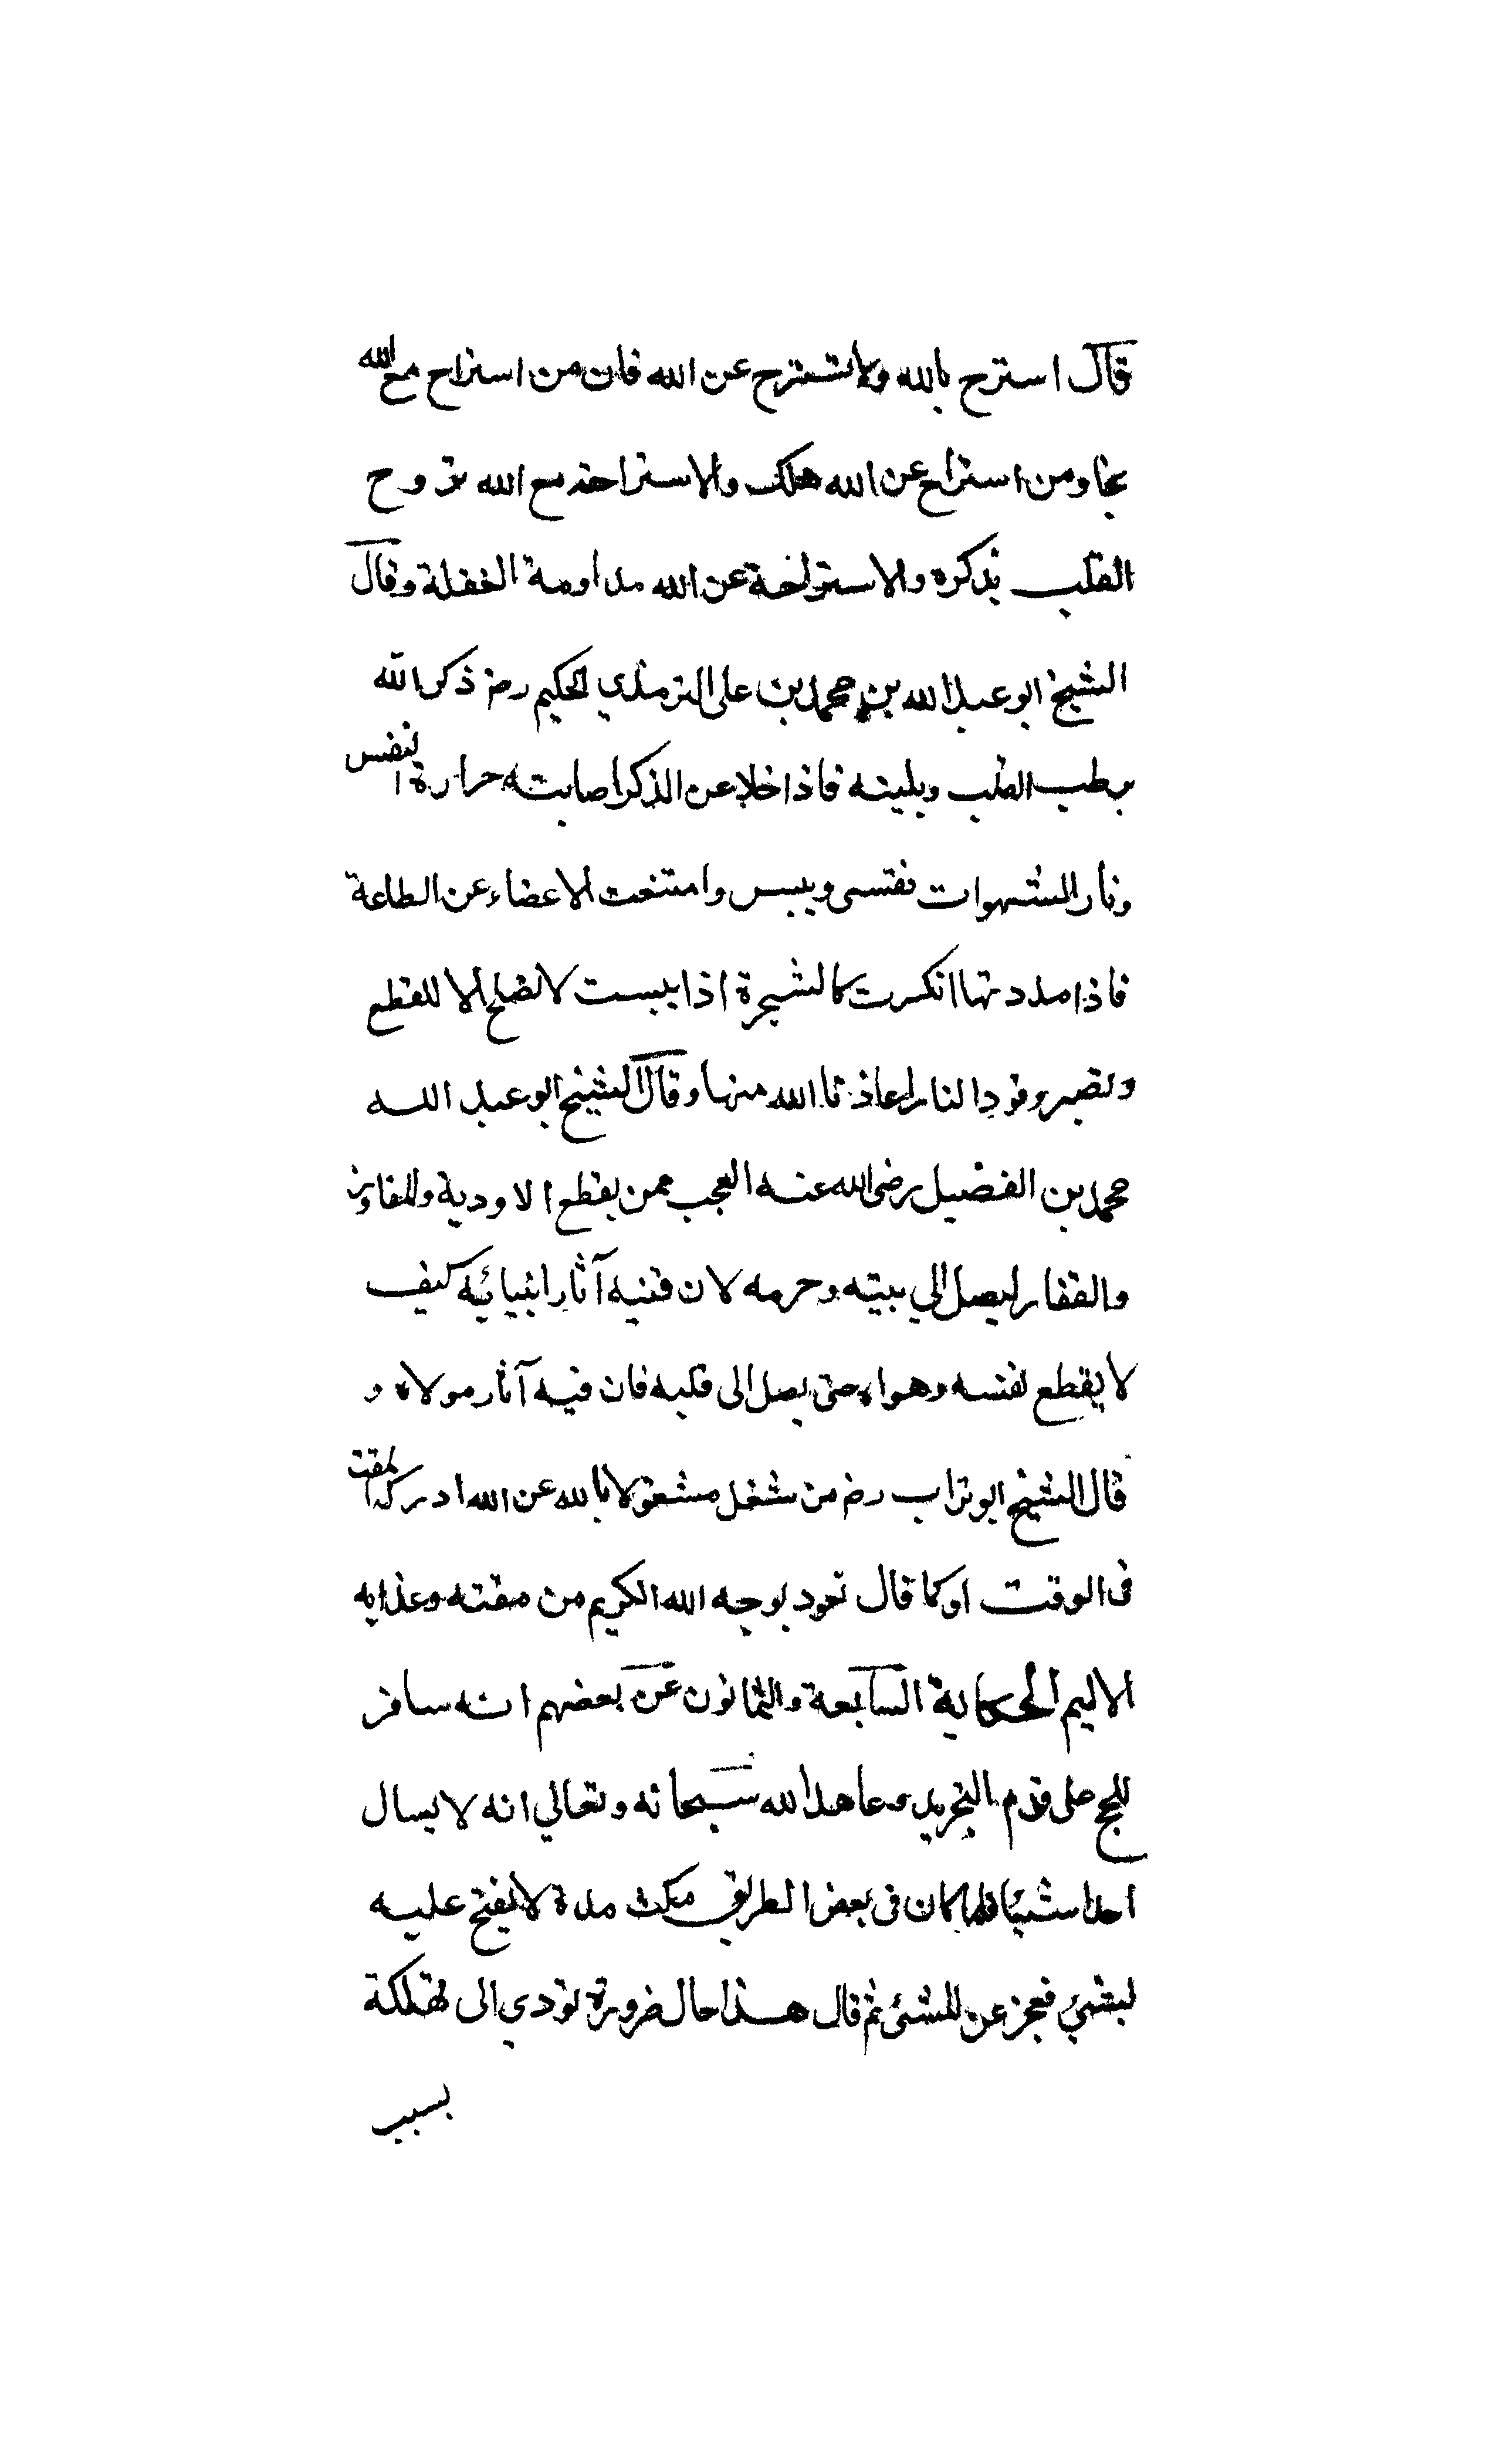 قال استرح بالله ولا تسترح عن الله فان من استراح مع الله
نجا ومن استراح عن الله هلك والاستراحة مع الله تروح
القلب بذكره والاستراحة عن الله مداومة الغفلة وقال
الشيخ ابو عبد الله بن محمد بن على الترمذي الحكيم رضز ذكر الله
يرطب القلب ويلينه فاذا خلا عن الذكر اصابته حرارة النفس
ونار الشهوات فقتسى ويبس وامتنعت الاعضاء عن الطاعة
فاذا مددتها انكسرت كالشجرة اذا يبست لا تصلح الا للقطع
وتصير وقود النار اعاذنا الله منها وقال الشيخ ابو عبد الله
محمد بن الفضيل رضى الله عنه العجب ممن يقطع الاودية والمفاوز
والقفار ليصل الي بيته وحرمه لان فيه آثار انبيائه كيف
لا يقطع نفسه وهواه حتى يصل الى قلبه فان فيه آثار مولاه و
قال الشيخ ابو تراب رضز من شغل مشغولا بالله عن الله ادركه المقت
فى الوقت او كما قال نعود بوجه الله الكريم من مقته وعذابه
الاليم الحكاية السابعة والثمانون عن بعضهم انه سافر
للحج على قدم التجريد وعاهد الله سبحانه وتعالي انه لا يسال
احدا شيئا فلما كان فى بعض الطريق مكث مدة لا يفتح عليه
بشيئ فعجز عن المشئ ثم قال هذا حال ضرورة تودي الى تهلكة
بسبب